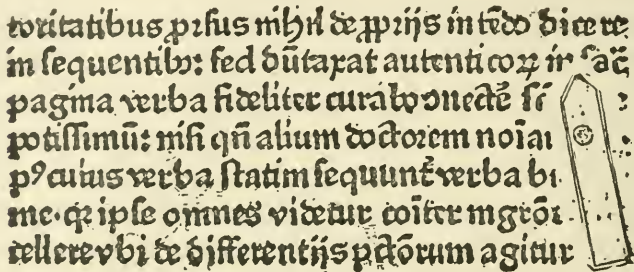 toritatibus pꝛsus nihil de ꝓpꝛijs intēdo dicere
in sequentibꝰ: sed dūtaxat autenticoꝝ in sac̄
pagina verba fideliter curabo ꝯnectē
potissimū: nisi qn̄ alium doctorem noīa
pꝰ cuius verba statim sequunt̄ verba
me. qꝛ ipse omnes videtur coīter in grōꝛ
cellere vbi de differentijs pctōrum agitur